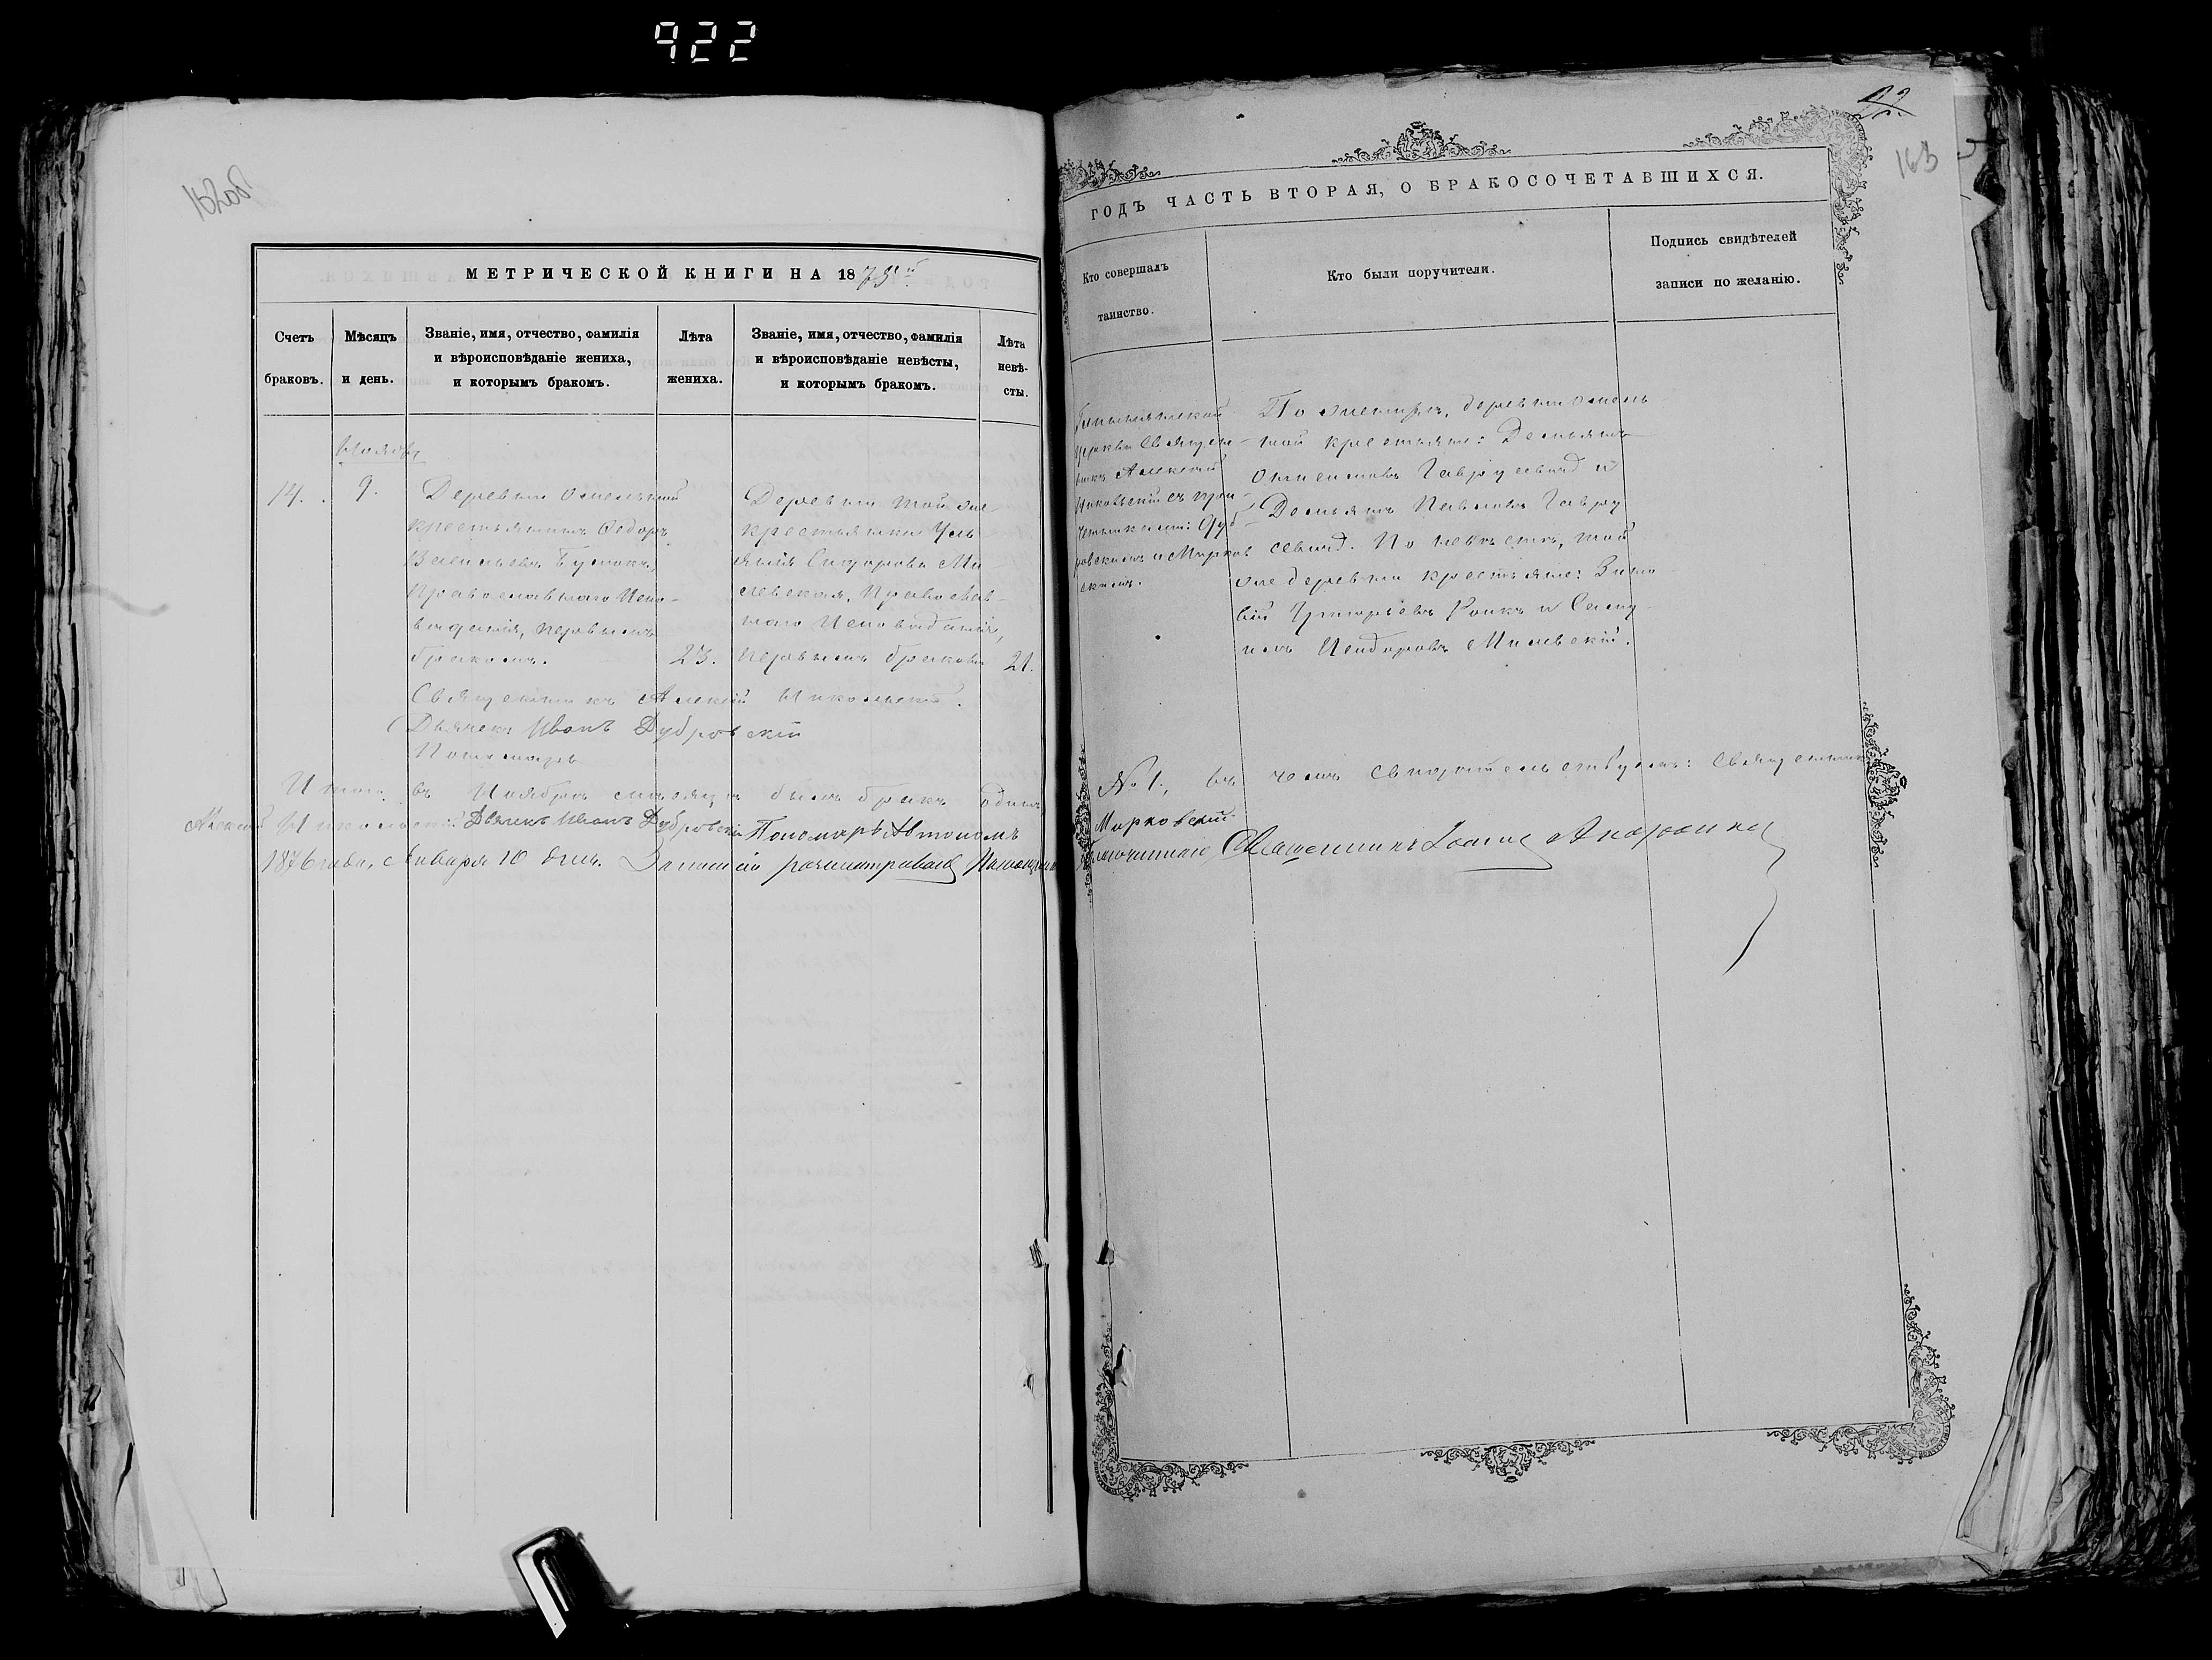 922
162об
МЕТРИЧЕСКОЙ КНИГИ НА 1875й
Счетъ браковъ.
Мѣсяцъ и день.
Званіе, имя, отчество, фамилія и вѣроисповѣданіе жениха, и которымъ бракомъ.
Лѣта жениха.
Званіе, имя, отчество, фамилія и вѣроисповѣданіе невѣсты, и которымъ бракомъ.
Лѣта невѣ-
сты.
Ноября
14.
9.
Деревни
крестьянинъ Ѳедоръ
Васильевъ
Православнаго Испо-
вѣданія, первымъ
бракомъ.
23.
Деревни той же
крестьянка Уль
яна Сидорова Ми
левская, Православ-
наго Исповѣданія,
первымъ бракомъ
21.
Священникъ Алексій Никольскій.
Дьячекъ Иванъ Дубровскій
Пономарь
Итого въ Ноябрѣ мѣсяцѣ былъ бракъ одинъ
Алексій Никольскій. Дьячекъ Иванъ Дубровскій Пономарь Автономъ
1876 года, Января 10 дня.
22
163
ГОДЪ ЧАСТЬ ВТОРАЯ, О БРАКОСОЧЕТАВШИХСЯ.
Кто совершалъ
таинство.
Кто были поручители.
Подпись свидѣтелей
записи по желанію.
церкви Священ-
никъ Алексій
Никольскій съ при-
четниками: Дуб-
ровскимъ и Марков
скимъ.
По женихѣ, деревни
той крестьяне: Демьянъ
и
Демьянъ Павловъ Гавру
севичъ. По невѣстѣ, той
же деревни крестьяне: Зино
вій Григорьевъ и Саму
илъ Исидоровъ Милевскій.
№ 1., въ чемъ свидѣтельствуемъ: Священникъ
Марковскій.
Священникъ Іоаннъ